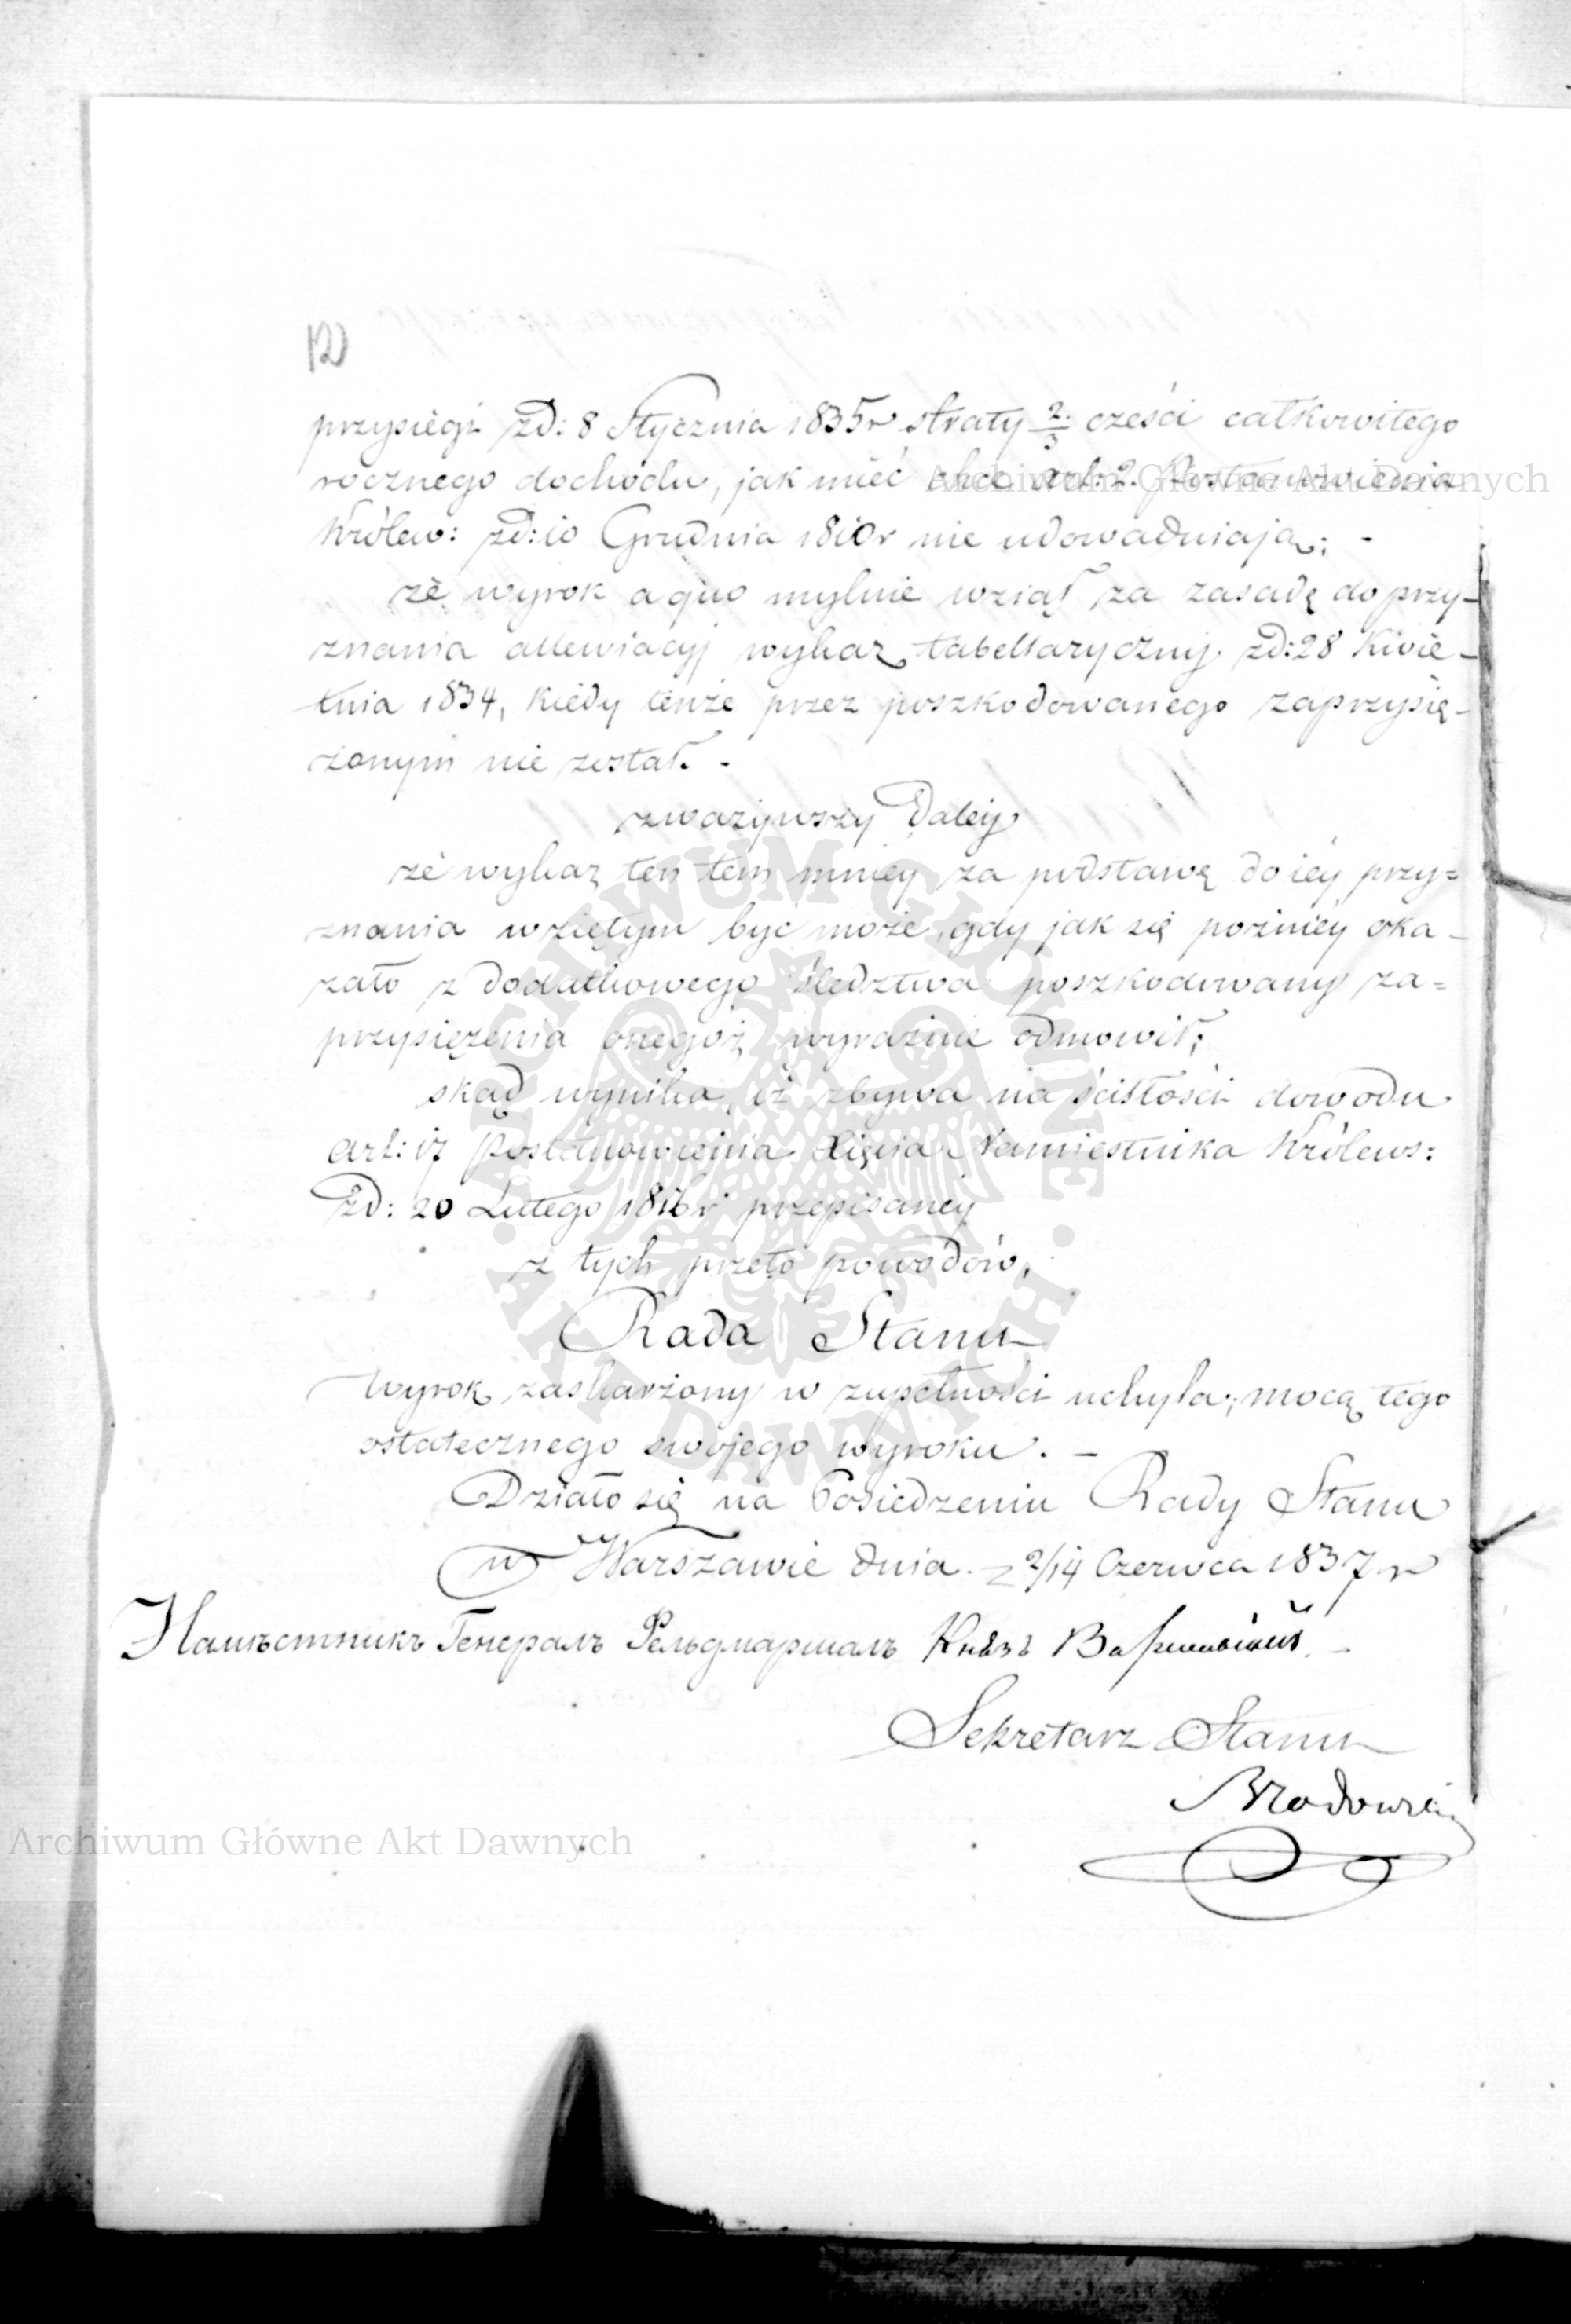 12)
przysięgi zd: 8 Stycznia 1835 r straty 2/3 cześci całkowitego
rocznego dochodu, jak mieć chce art: 2. Postanowienia
Królew: zd: 10 Grudnia 1810 r nie udowadniają; -
że wyrok a quo mylnie wziął za zasadę do przy-
znania allewiacyj wykaz tabellaryczny zd: 28 Kwie-
tnia 1834, kiedy tenże przez poszkodowanego zaprzysię-
żonym nie został. -
zważywszy Daley
że wykaz ten tem mniey za podstawę do iéy przy=
znania wziętym być może, gdy jak się poźniéy oka-
zało z dodatkowego śledztwa poszkodowany za=
przysiężenia onegoż wyraźnie odmowił;
skąd wynika, iż zbywa na ścisłości dowodu
art: 17 Postanowienia Xięcia Namiestnika Królews:
zd: 20 Lutego 1816 r przepisaney
z tych przeto powodów,
Rada Stanu
wyrok zaskarżony w zupełności uchyla; mocą tego
ostatecznego swojego wyroku. -
Działo się na Posiedzeniu Rady Stanu
w Warszawie dnia 2/14 Czerwca 1837 r
Намѣстникъ Генералъ Фельдмаршалъ Князь Варшавскій. -
Sekretarz Stanu
Archiwum Główne Akt Dawnych
Archiwum Główne Akt Dawnych
ARCHIWUM GŁÓWNE · AKT DAWNYCH ·